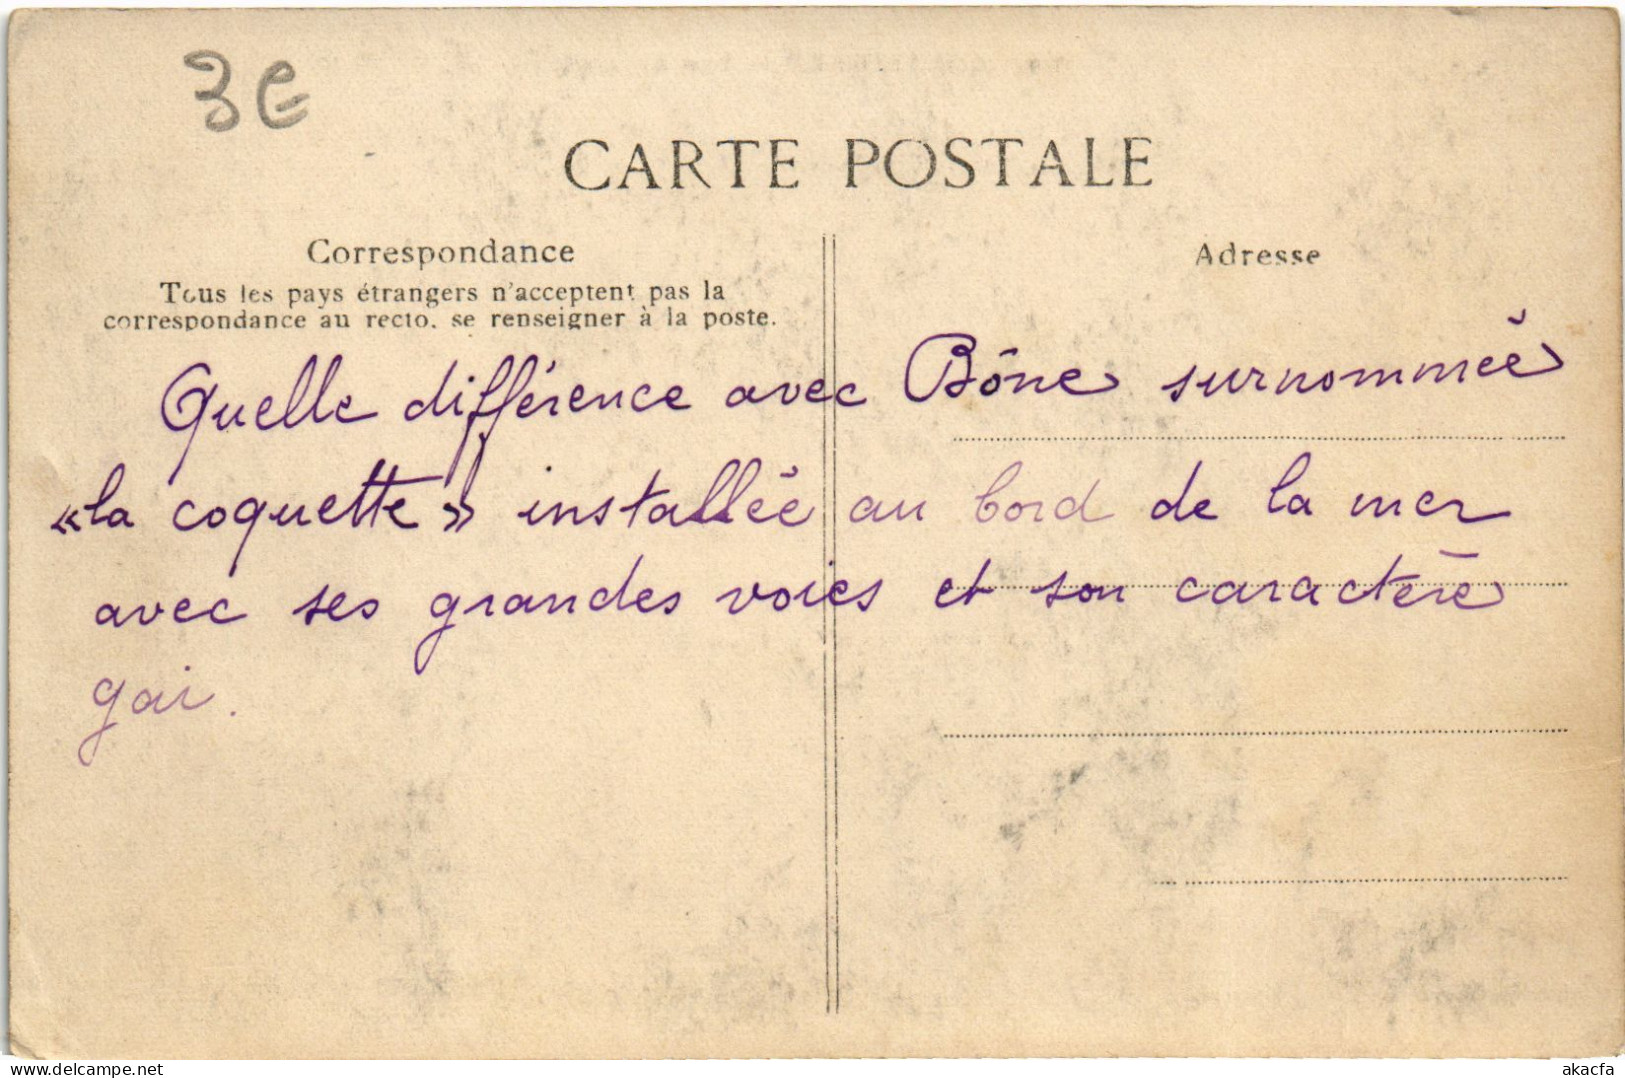 3€
CARTE POSTALE
Correspondance
Adresse
Tous les pays étrangers n'acceptent pas la
correspondance au recto. se renseigner à la poste.
Quelle différence avec Bône surnommée
«la coquette» installée au bord de la mer
avec ses grandes voies et son caractère
gai.
delcampe.net
akacfa